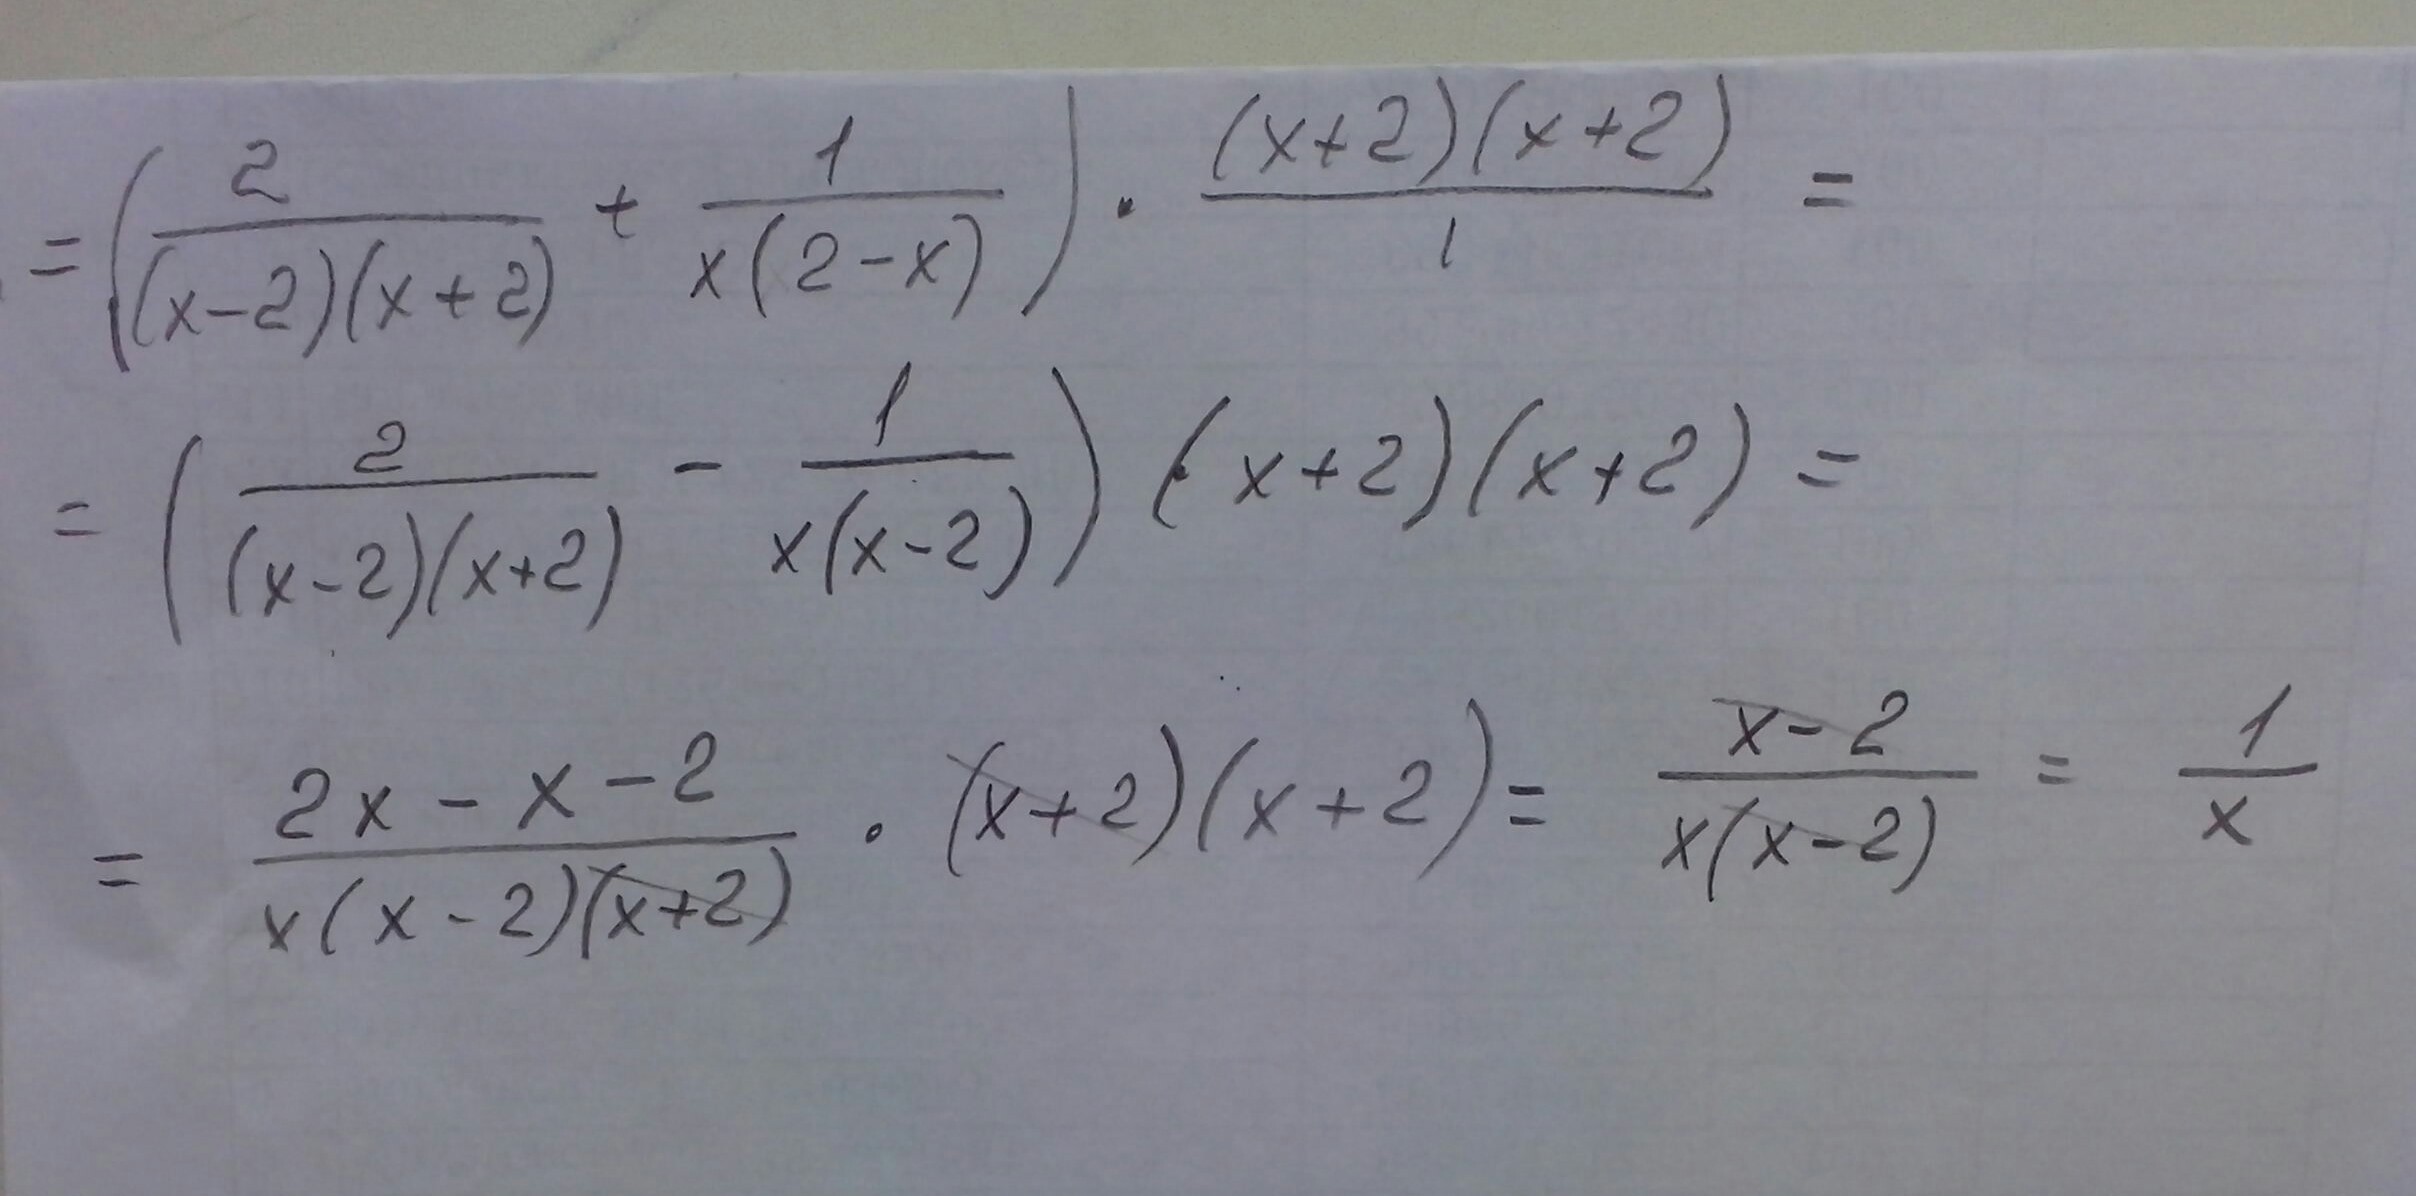 = (2/((x-2)(x+2)) + 1/(x(2-x))) · ((x+2)(x+2))/1 =
= (2/((x-2)(x+2)) - 1/(x(x-2))) (x+2)(x+2) =
= (2x-x-2)/(x(x-2)(x+2)) · (x+2)(x+2) = (x-2)/(x(x-2)) = 1/x